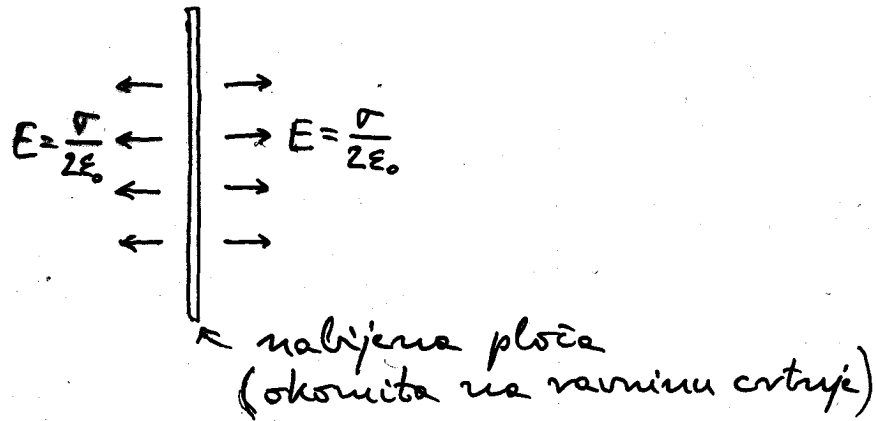 E = σ/2ε₀
E = σ/2ε₀
nabijena ploča
(okomita na ravninu crtnje)